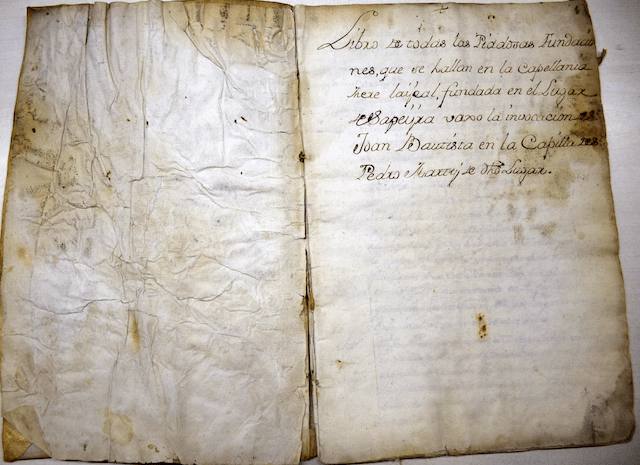 Libro de todas las Piadosas Fundacio
nes, que se hallan en la Capellania
mere laycal, fundada en el Lugar
de Sapeyra vaxo la invocacion de S.
Joan Bautista en la Capilla de S.
Pedro Martyr de dho Lugar.